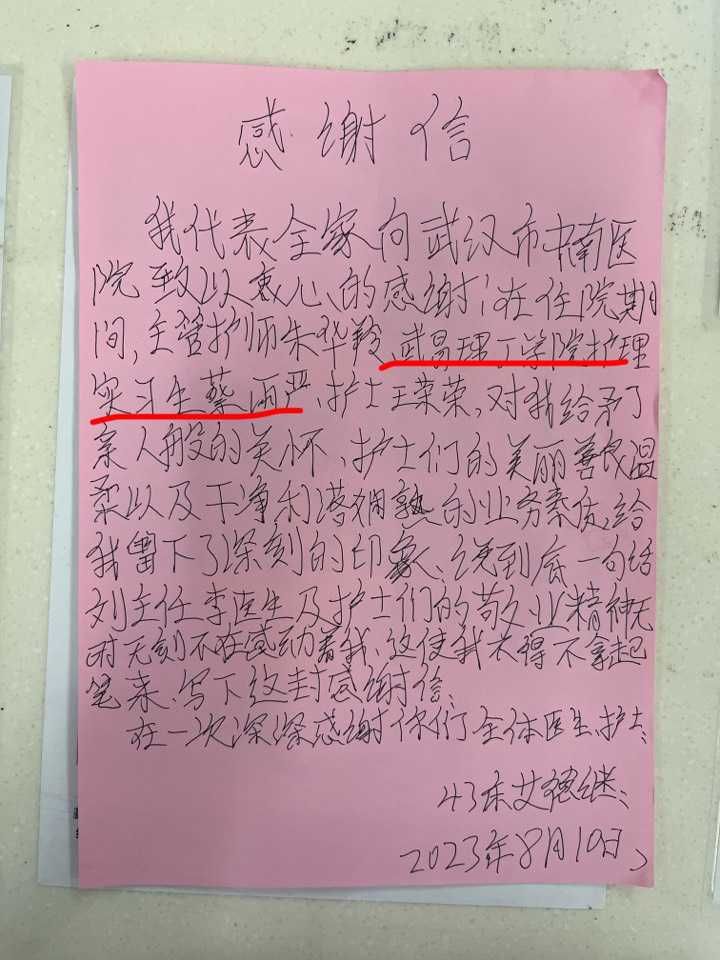 感谢信
我代表全家向武汉市中南医
院致以衷心的感谢!在住院期
间,主管护师朱华羚、武昌理工学院护理
实习生蔡雨严、护士王荣荣,对我给予了
亲人般的关怀、护士们的美丽善良温
柔以及干净利落娴熟的业务素质,给
我留下了深刻的印象、说到底一句话
刘主任李医生及护士们的敬业精神无
时无刻不在感动着我、这使我不得不拿起
笔来、写下这封感谢信、
在一次深深感谢你们全体医生、护士、
43床艾德继、
2023年8月10日、